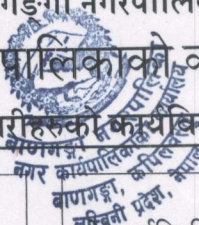 गङ्गा नगरपालि
पालिकाको व
रीहरुको कार्यवि
बाणगङ्गा नगरपालिका
नगर कार्यपालिकाको कार्यालय
बाणगङ्गा, कपिलवस्तु
लुम्बिनी प्रदेश, नेपाल